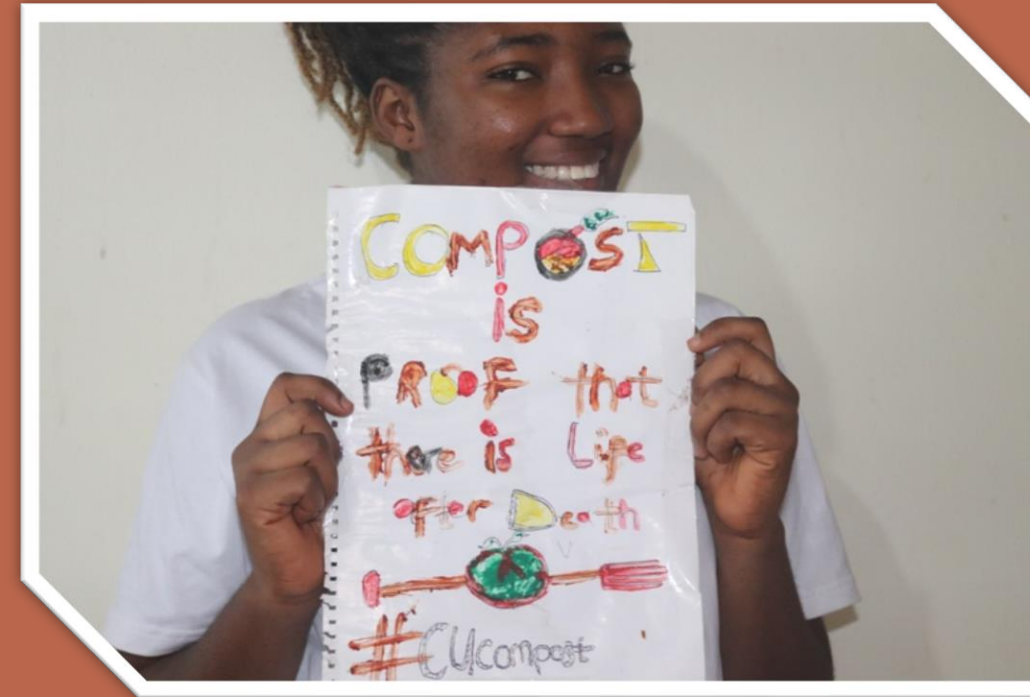 COMPOST
is
PROOF that
there is Life
after Death
#CUcompost